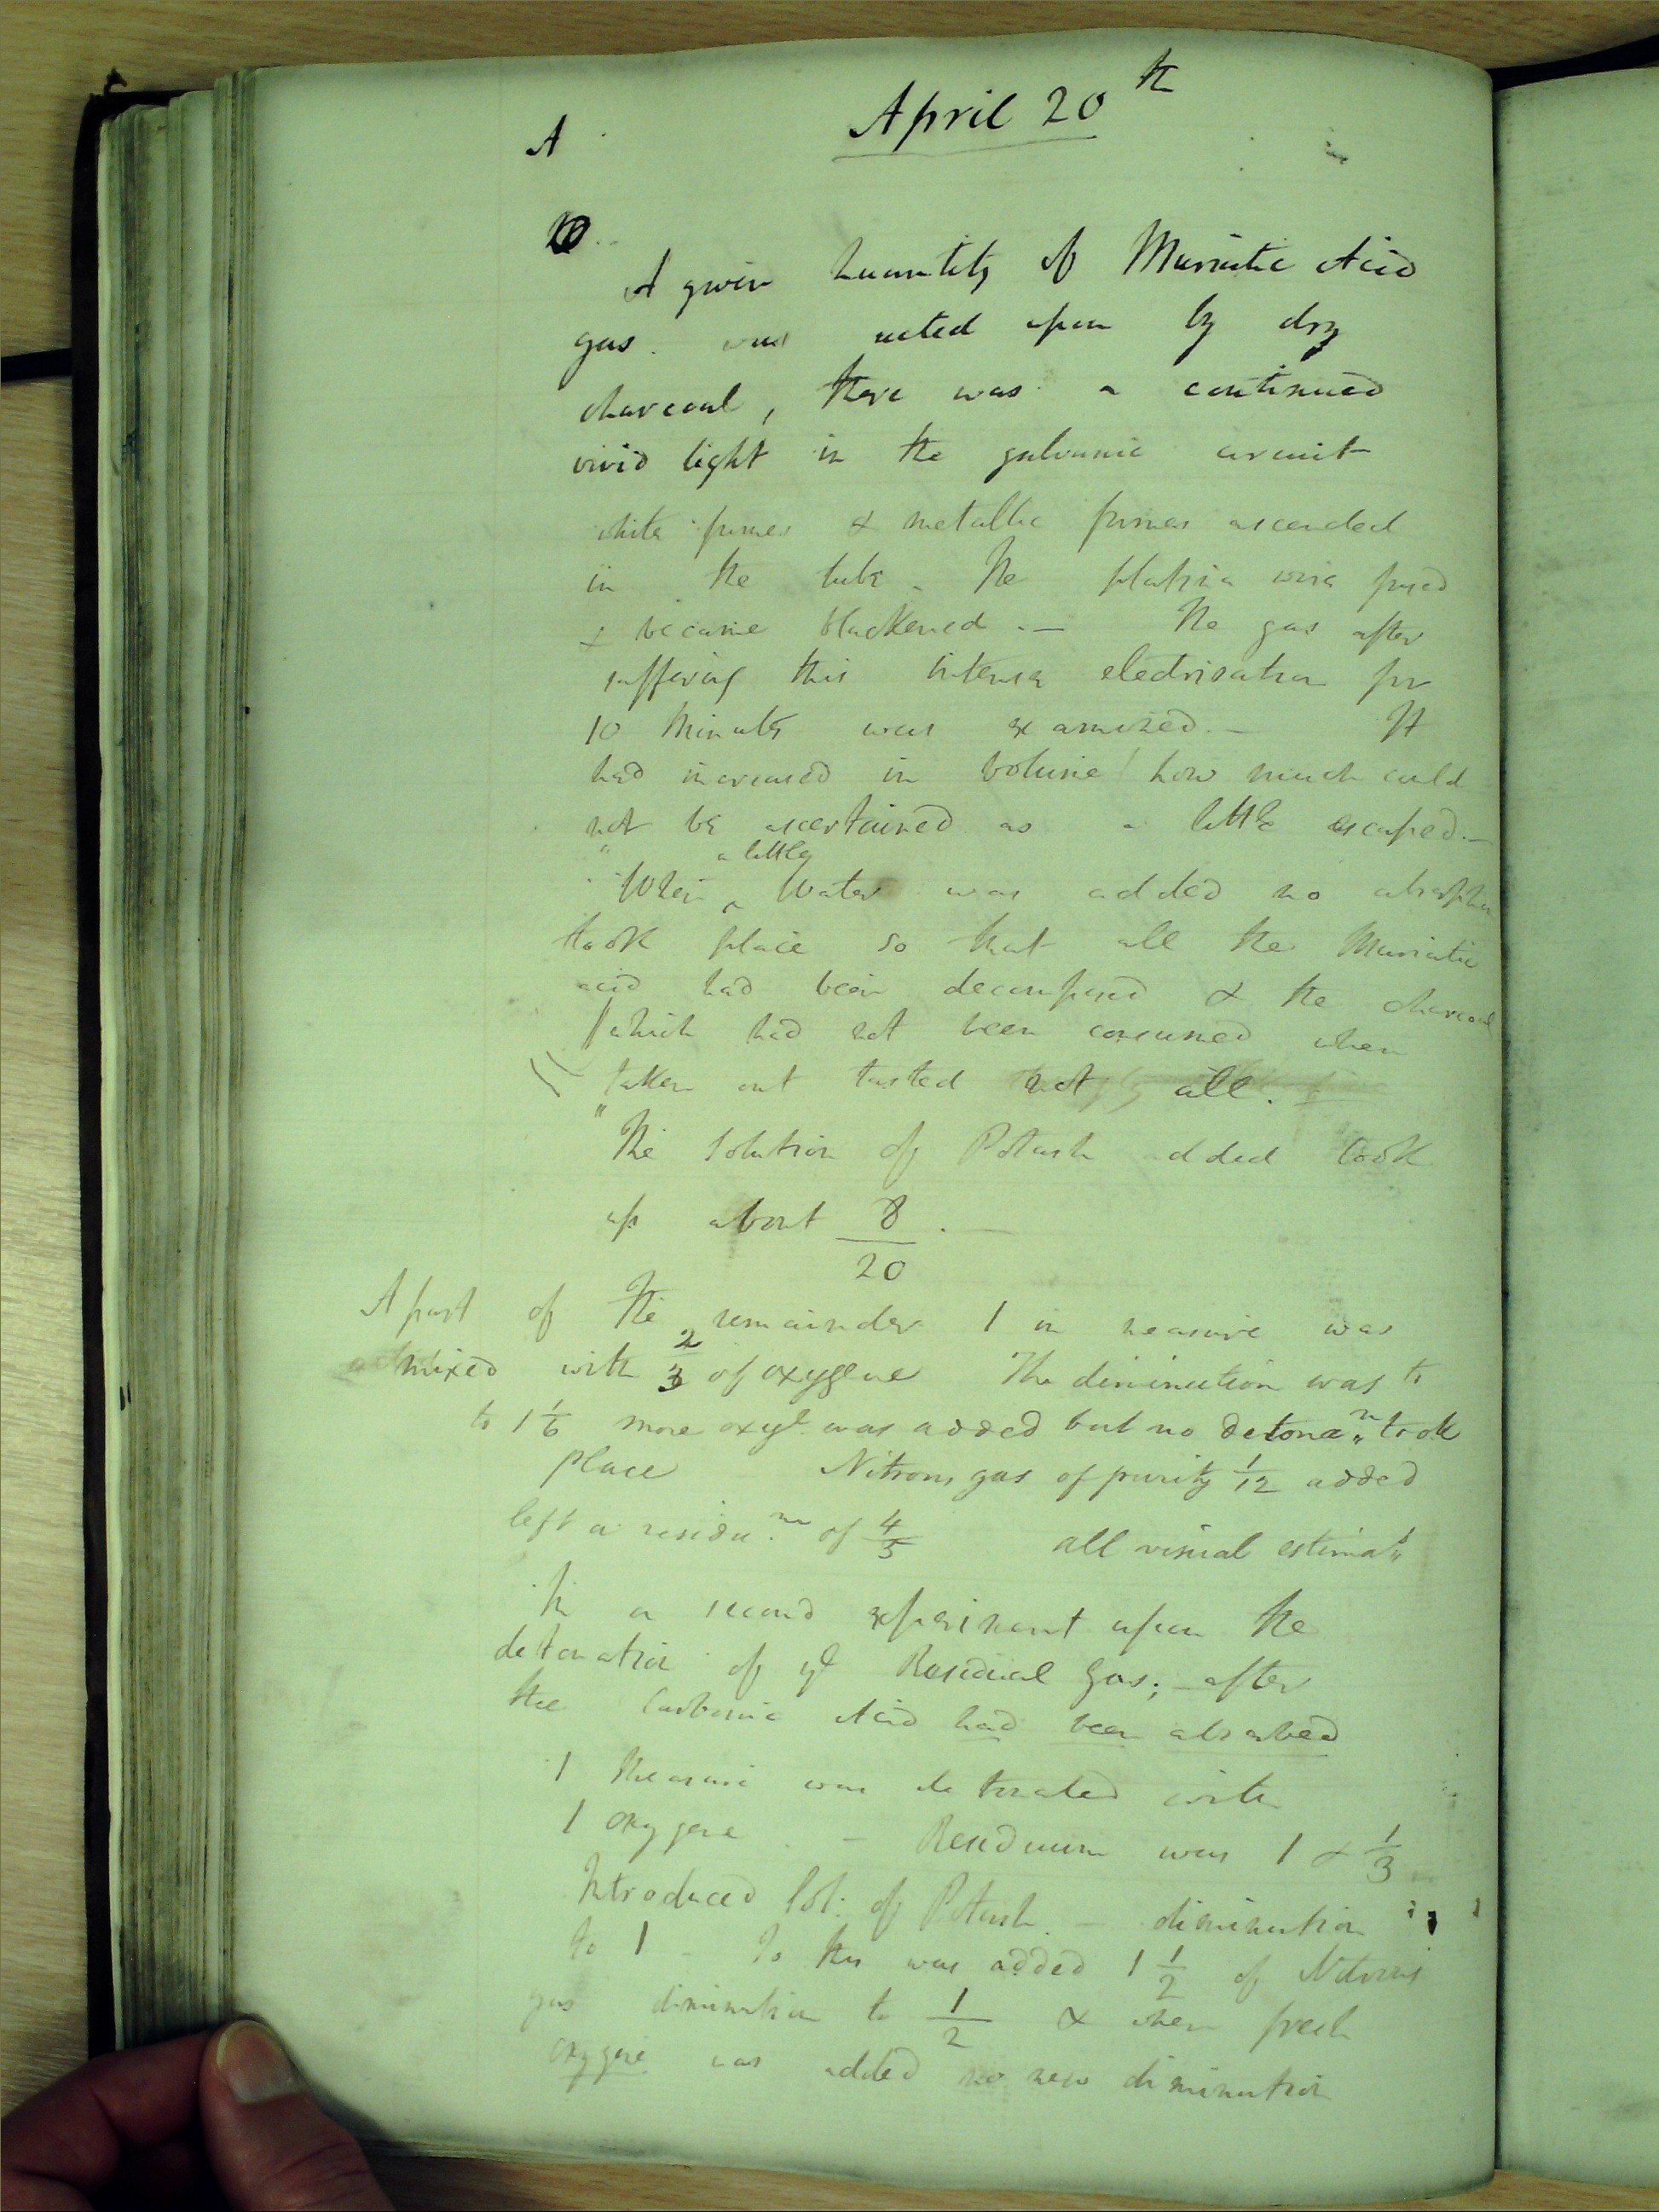 April 20th
A
A given quantity of Muriatic Acid
gas. was acted upon by dry
charcoal, there was a continued
vivid light in the galvanic circuit
white fumes & metallic fumes ascended
in the tube. The platina wire fused
& became blackened. — The gas after
suffering this intense electrisation for
10 Minutes was examined. — It
had increased in volume / how much could
not be ascertained as a little escaped. —
When a little Water was added no absorption
took place so that all the Muriatic
acid had been decomposed & the charcoal
which had not been consumed when
taken out tasted not all.
The solution of Potash added took
up about 8/20. —
A part of the remainder 1 in measure was
mixed with 2/3 of oxygene The diminution was to
to 1 1/6 more oxye was added but no detonan took
place Nitrous gas of purity 1/12 added
left a residuum of 4/5 all visual estimats
In a second experiment upon the
detonation of ye Residual Gas; after
the Carbonic Acid had been absorbed
1 Measure was detonated with
1 oxygene. — Residuum was 1 & 1/3
Introduced Sol: of Potash — diminution
to 1 — To this was added 1 1/2 of Nitrous
gas diminution to 1/2 & when fresh
oxygene was added no new diminution